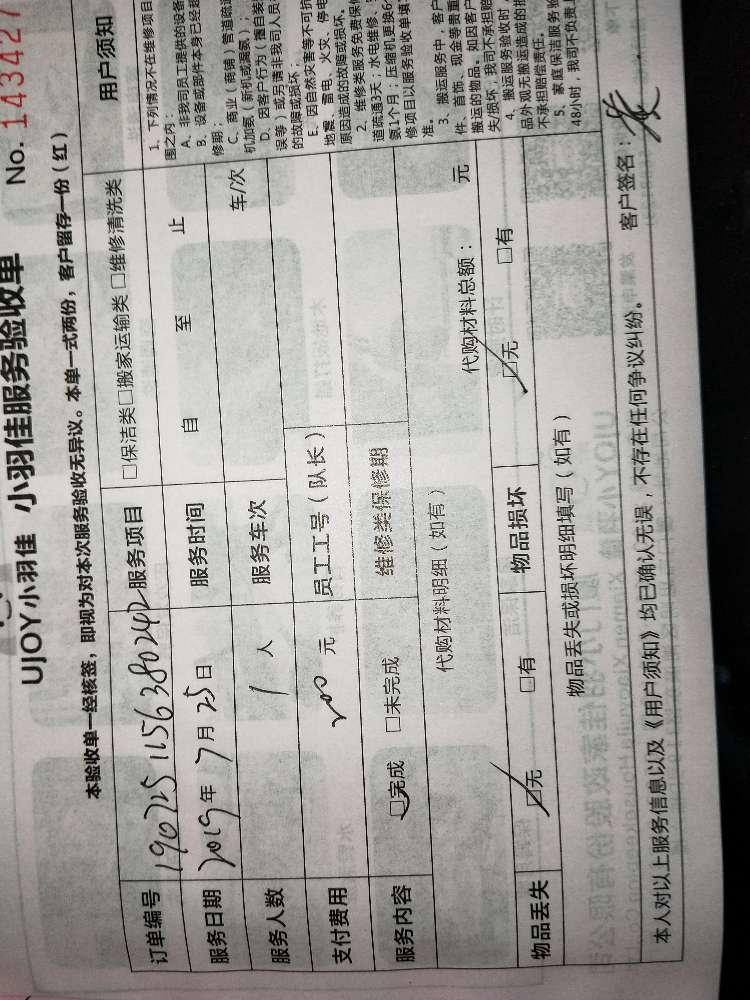 UJOY小羽佳 小羽佳服务验收单
No. 143427
本验收单一经核签，即视为对本次服务验收无异议。本单一式两份，客户留存一份（红）
订单编号 1907251156380242 服务项目 □保洁类□搬家运输类□维修清洗类
服务日期 2019年7月25日 服务时间 自 至 止
服务人数 1人 服务车次 车/次
支付费用 200元 员工工号（队长）
服务内容 ☑完成 □未完成 维修类保修期
代购材料明细（如有） 代购材料总额： 元
物品丢失 ☑无 □有 物品损坏 ☑无 □有
物品丢失或损坏明细填写（如有）
本人对以上服务信息以及《用户须知》均已确认无误，不存在任何争议纠纷。 客户签名：
用户须知
1、下列情况不在维修项目
围之内：
A、非我司员工提供的设备
B、设备或部件本身已经超
修期；
C、商业（商铺）管道疏通
机加氨（新机或漏氨）；
D、因客户行为（擅自装
误等）或另请非我司人员
的故障或损坏；
E、因自然灾害等不可抗
地震、雷电、火灾、停电
原因造成的故障或损坏。
2、维修类服务免费保修
道疏通3天；水电维修、
氨1个月；压缩机更换6
修项目以服务验收单填
准。
3、搬运服务中，客户
件、首饰、现金等贵重
搬运的物品。如因客户
失/损坏，我司不承担赔
4、搬运服务验收时，
品外观无搬运造成的损
不承担赔偿责任。
5、家庭保洁服务验
48小时，我司不负责